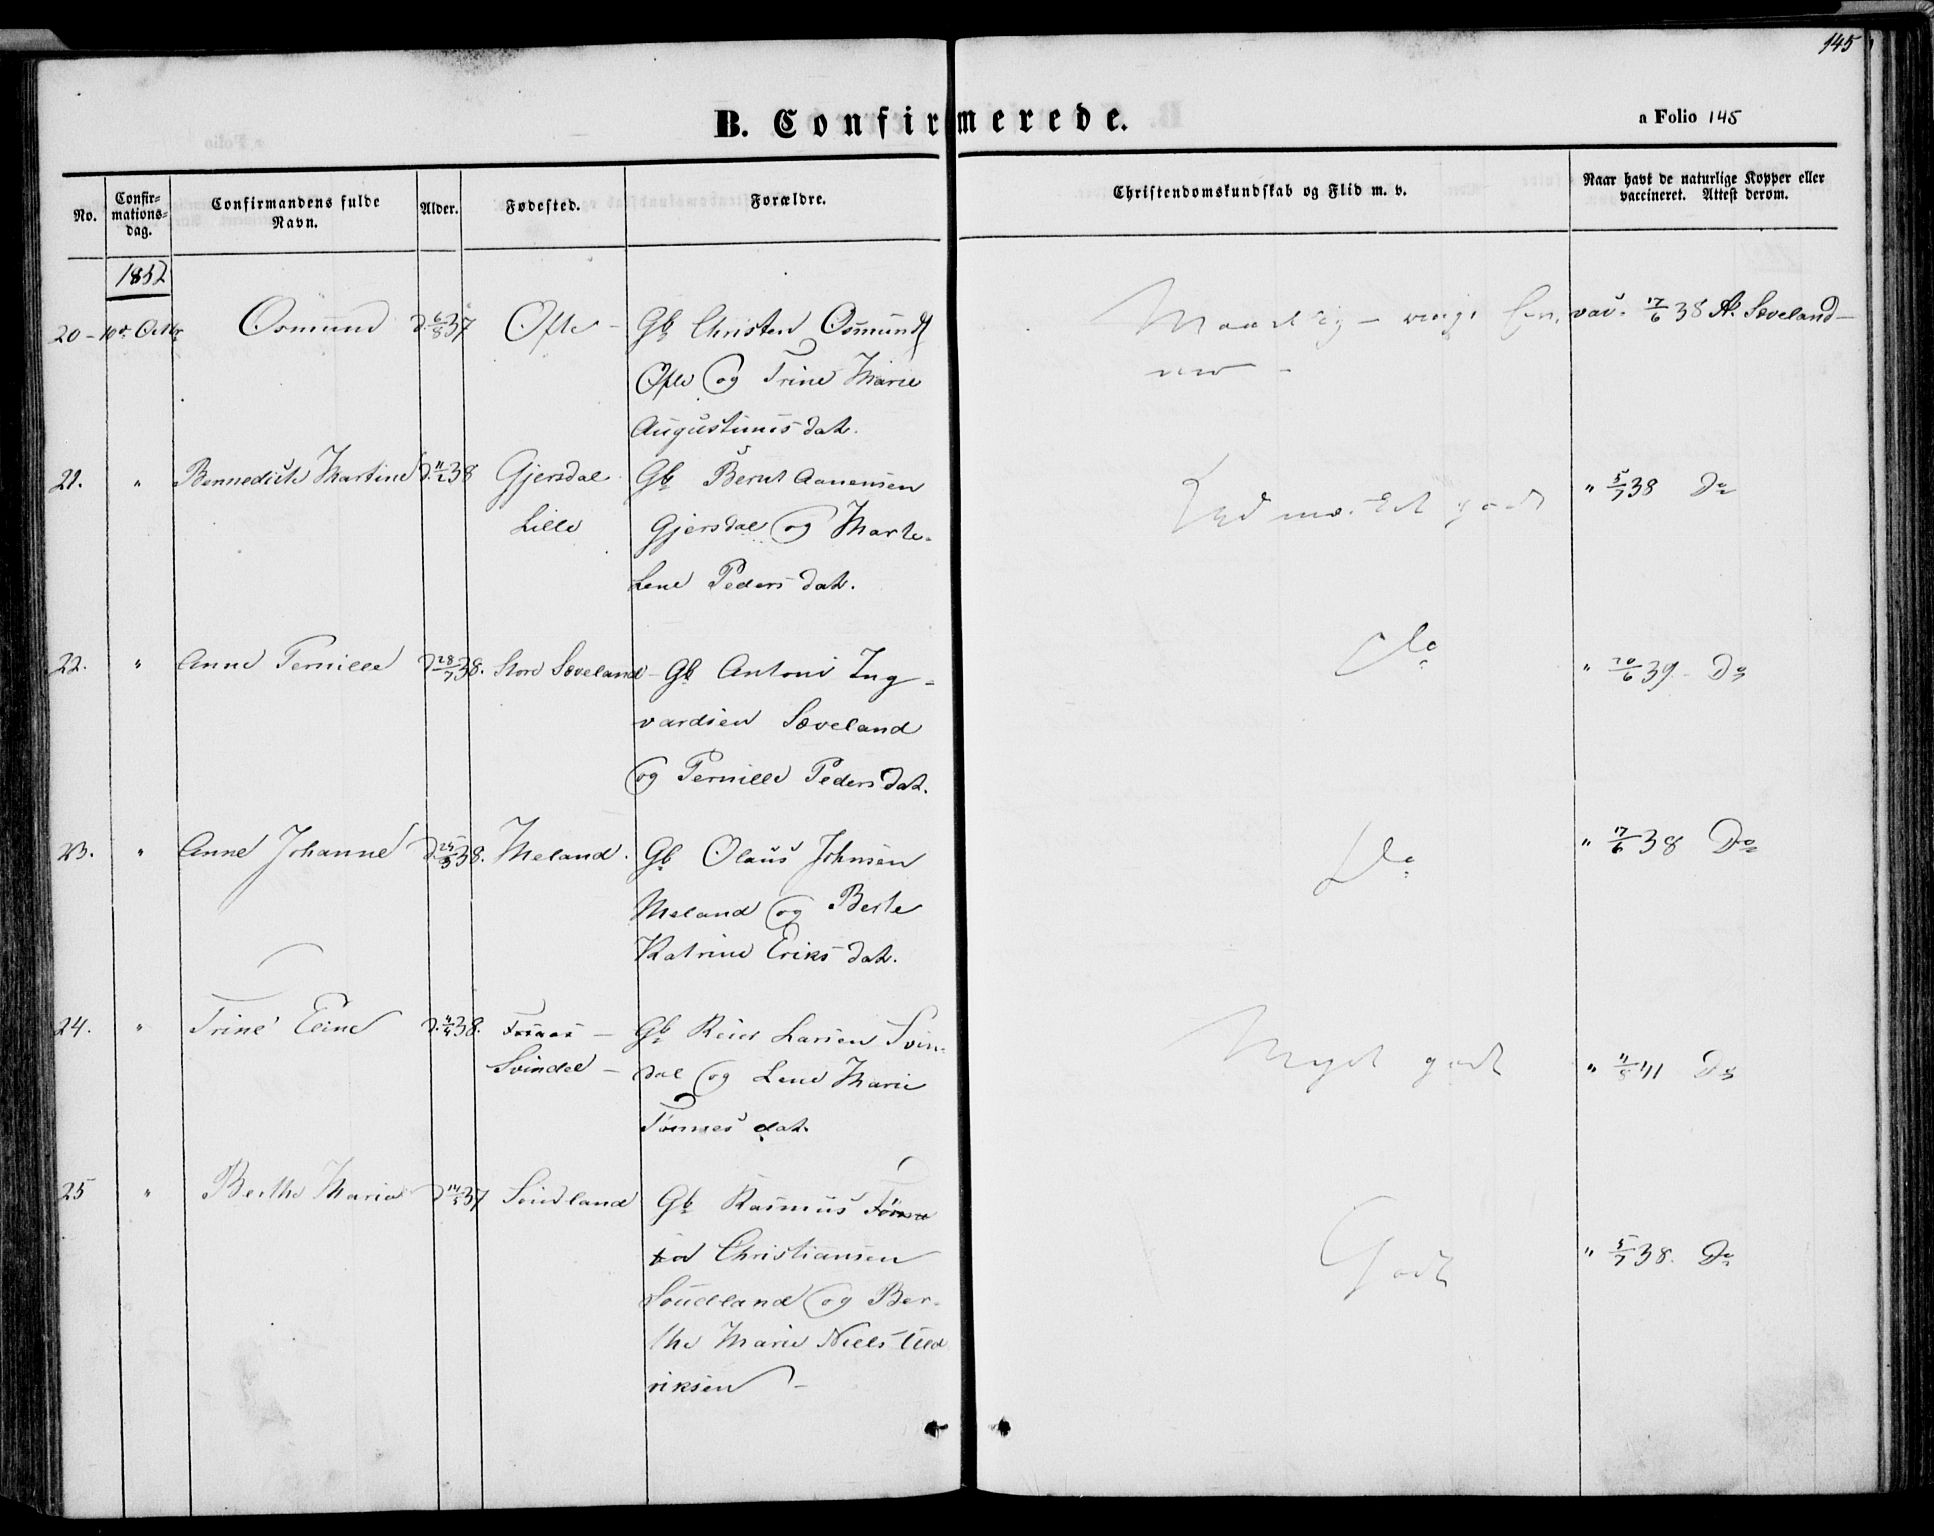 145
B. Confirmerede.
a Folio 145
No.
Confir-
mations-
dag.
Confirmandens fulde
Navn.
Alder.
Fødested.
Forældre.
Christendomskundskab og Flid m. v.
Naar havt de naturlige Kopper eller
vaccineret. Attest derom.
1852
20 - 10de Octbr Osmund d. 6/8 37 Ofte - Gb Christen Osmunds
Ofte og Trine Marie
Augustinusdatr.
Maadelig -
vac. 17/6 38 A. Sæveland -
21. " Bennedicte Martine d. 11/2 38 Gjersdal Gb Bernt Aanensen
Lille Gjersdal og Marte
Lene Pedersdatr.
godt
" 5/7 38 Do
22. " Anne Pernille d. 28/7 38. Store Sæveland - Gb Antoni Ing-
vardsen Sæveland
og Pernille Pedersdatr.
Do
" 20/6 39 - Do
23. " Anne Johanne d. 25/3 38. Meland. Gb Olaus Johnsen
Meland og Berte
Katrine Eriksdatr.
Do
" 17/6 38 Do
24. " Trine Eline d. 4/4 38. Svindal - Gb Reier Larsen Svin-
dal og Lene Marie
Tønnesdatr.
Meget godt
" 11/8 41 Do
25 " Berthe Maria d. 14/5 37 Soudland Gb Rasmus
Christiansen
Soudland og Ber-
the Marie Niels Uld
riksen -
Godt
" 5/7 38. Do